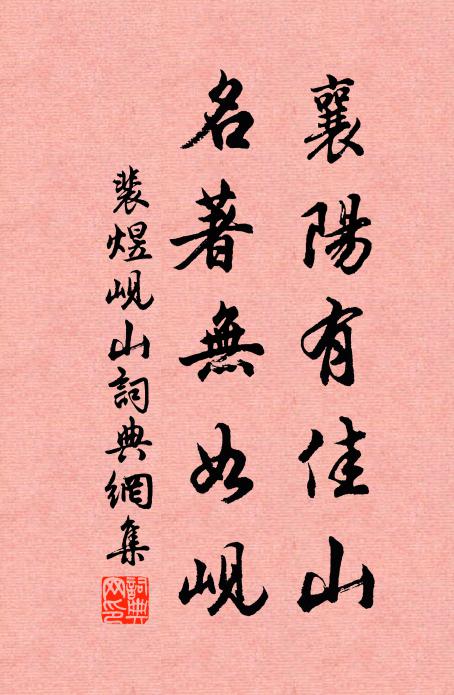 襄陽有佳山
名著無如峴
裴煜峴山詞典網集
詞典網印